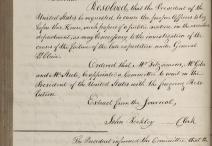 Resolved, that the President of the
United States be requested, to cause the proper Officers to lay
before this House, such papers of a public nature, in the
department, as may be necessary to the investigation of the
causes of the failure of the late expedition under General
St Clair.
Ordered that Mr Fitzsimons, Mr Giles
and Mr be appointed a Committee to wait on the
President of the United States with the foregoing Reso-
lution.
Extract from the Journal,
John Beckley Clerk
The President informed the Committee that he